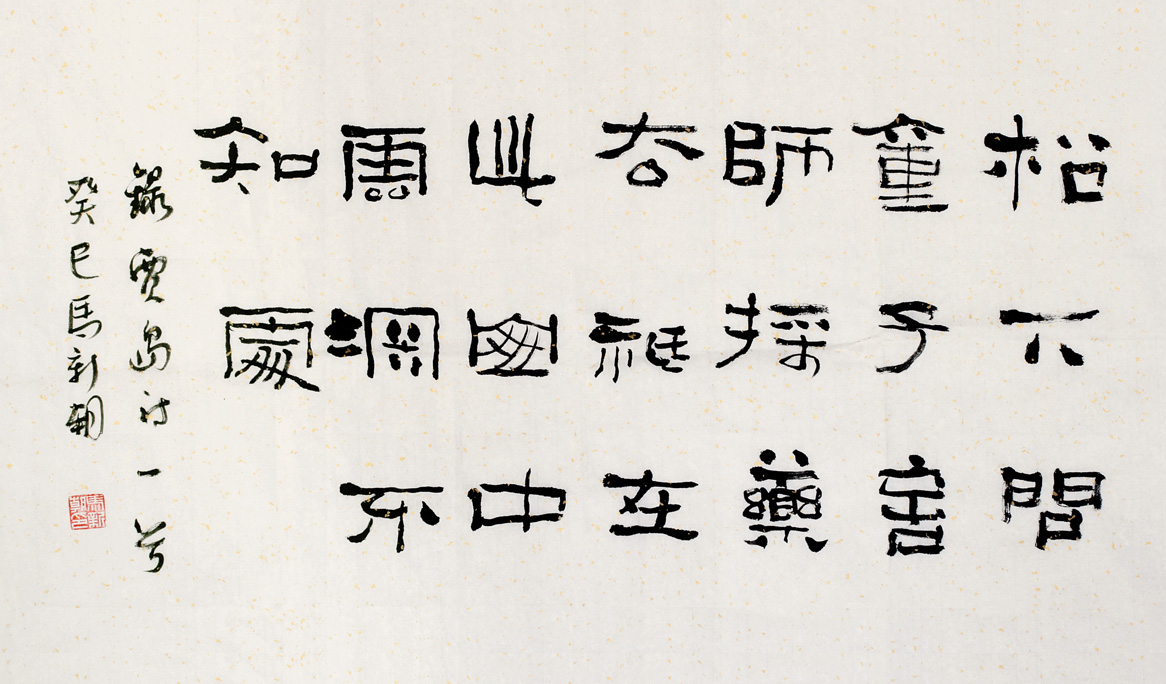 松下問
童子言
師採藥
去祇在
此山中
雲深不
知處
錄賈島詩一首
癸巳馬新朝